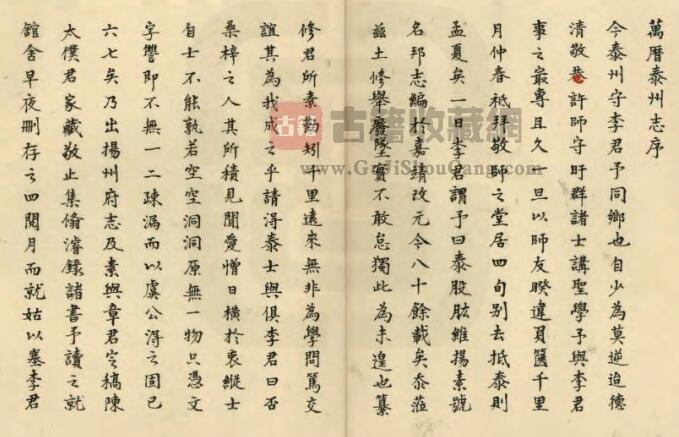 萬曆泰州志序
今泰州守李君予同鄉也自少為莫逆迨德
清敬菴許師守盱群諸士講聖學予與李君
事之最專且久一旦以師友睽違負篋千里
月仲春祗拜敬師之堂居四旬別去抵泰則
孟夏矣一日李君謂予曰泰股肱維揚素號
名邦志編於嘉靖改元今八十餘載矣忝蒞
茲土修舉廢墜實不敢怠獨此為未遑也纂
修君所素勤矧千里遠來無非為學問篤交
誼其為我成之乎請得泰士與俱李君曰否
桑梓之人其所積見聞愛憎日橫於衷縱士
自士不能孰若空空洞洞原無一物只憑文
字讐即不無一二疎漏而以虞公得之固已
六七矣乃出揚州府志及素與章君定稿陳
太僕君家藏敬止集偹濬錄諸書予讀之就
館舍早夜刪存之四閱月而就姑以塞李君
古籍
古籍收藏网
www.GuJiShouCang.com